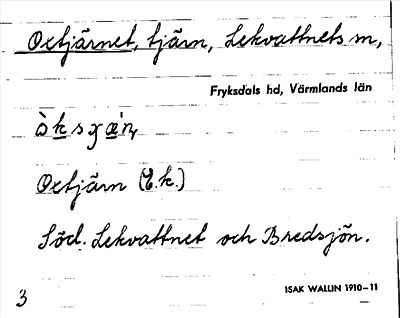 Oxtjärnet, tjärn, Lekvattnets sn,
Fryksdals hd, Värmlands län
Oxtjärn (E.k.)
Söd. Lekvattnet och Bredsjön.
3
ISAK WALLIN 1910-11